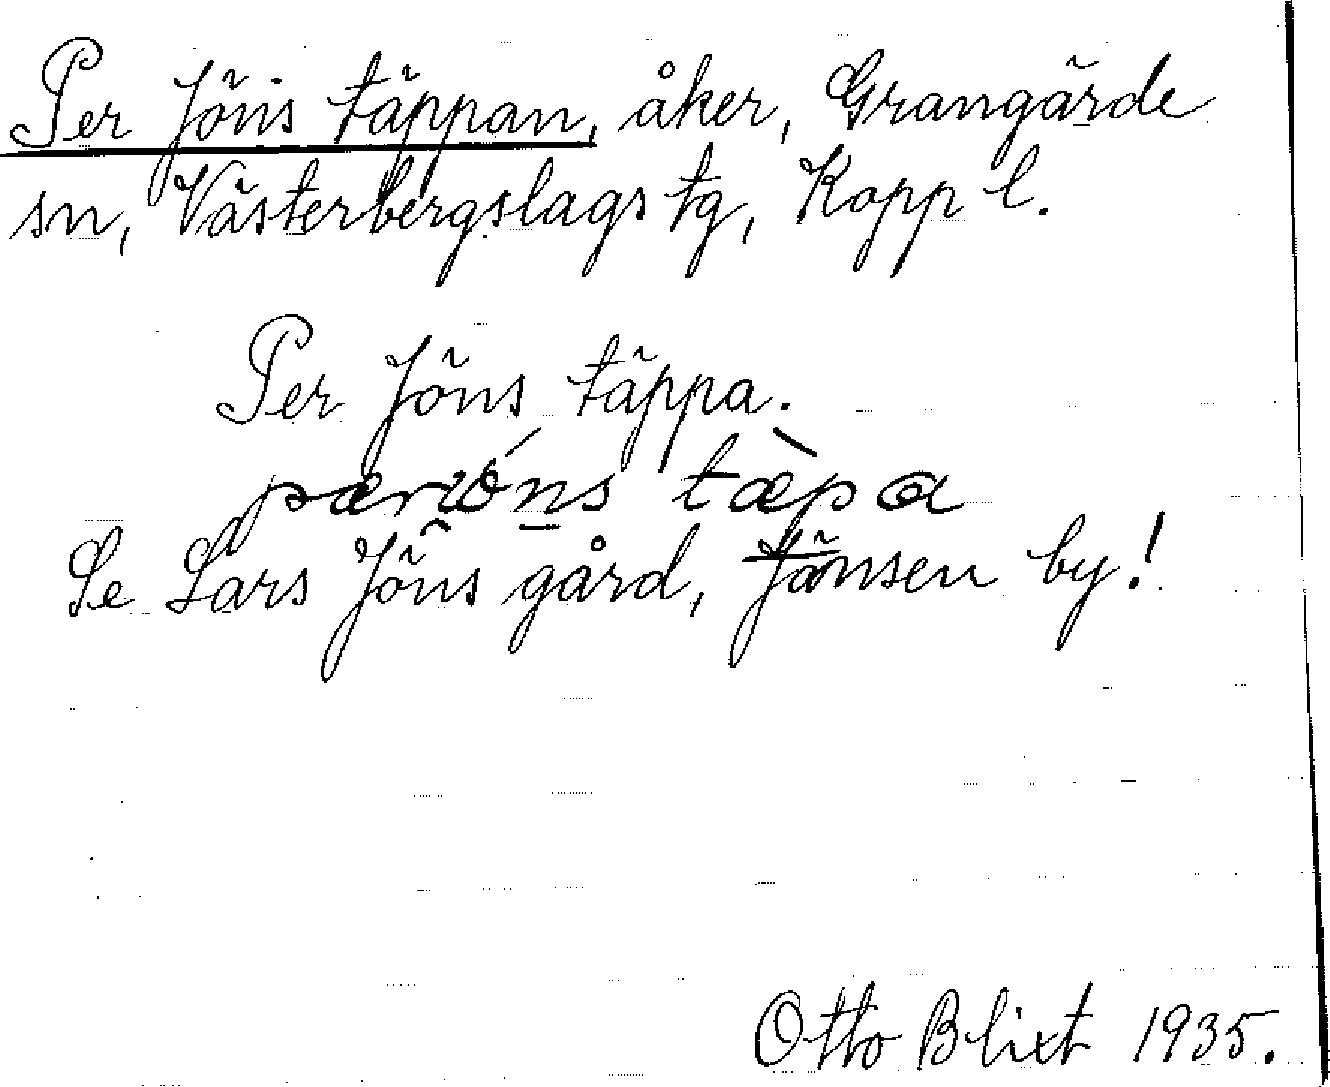 Per Jöns täppan, åker, Grangärde
sn, Västerbergslags tg, Kopp l.
Per Jöns täppa.
tæpa
Se Lars Jöns gård, Jänsen by!
Otto Blixt 1935.